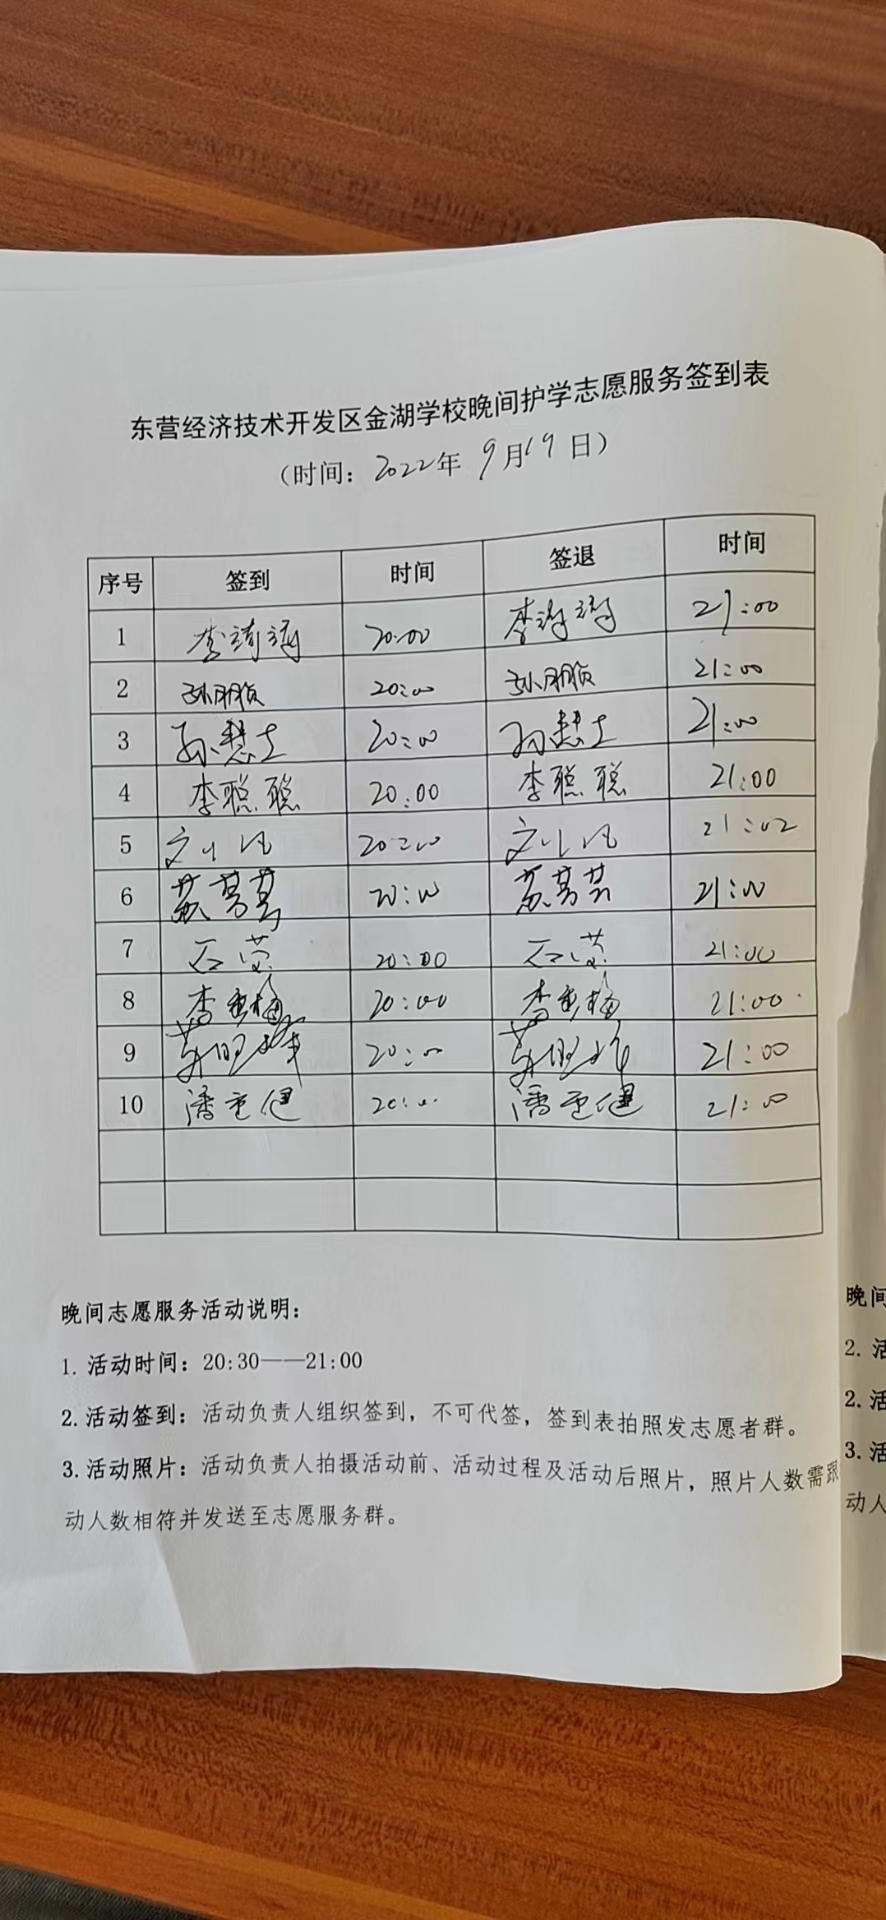 东营经济技术开发区金湖学校晚间护学志愿服务签到表
（时间：2022年 9月19日）
序号 签到 时间 签退 时间
1 20:00 21:00
2 孙朋 20:00 孙朋 21:00
3 孙慧 20:00 孙慧 21:00
4 李聪聪 20:00 李聪聪 21:00
5 20:00 21:02
6 20:00 21:00
7 石莹 20:00 石莹 21:00
8 李 梅 20:00 李 梅 21:00
9 20:00 21:00
10 潘 健 20:00 潘 健 21:00
晚间志愿服务活动说明：
1. 活动时间：20:30——21:00
2. 活动签到：活动负责人组织签到，不可代签，签到表拍照发志愿者群。
3. 活动照片：活动负责人拍摄活动前、活动过程及活动后照片，照片人数需跟
动人数相符并发送至志愿服务群。
晚间
2. 活
2. 活
3. 活
动人